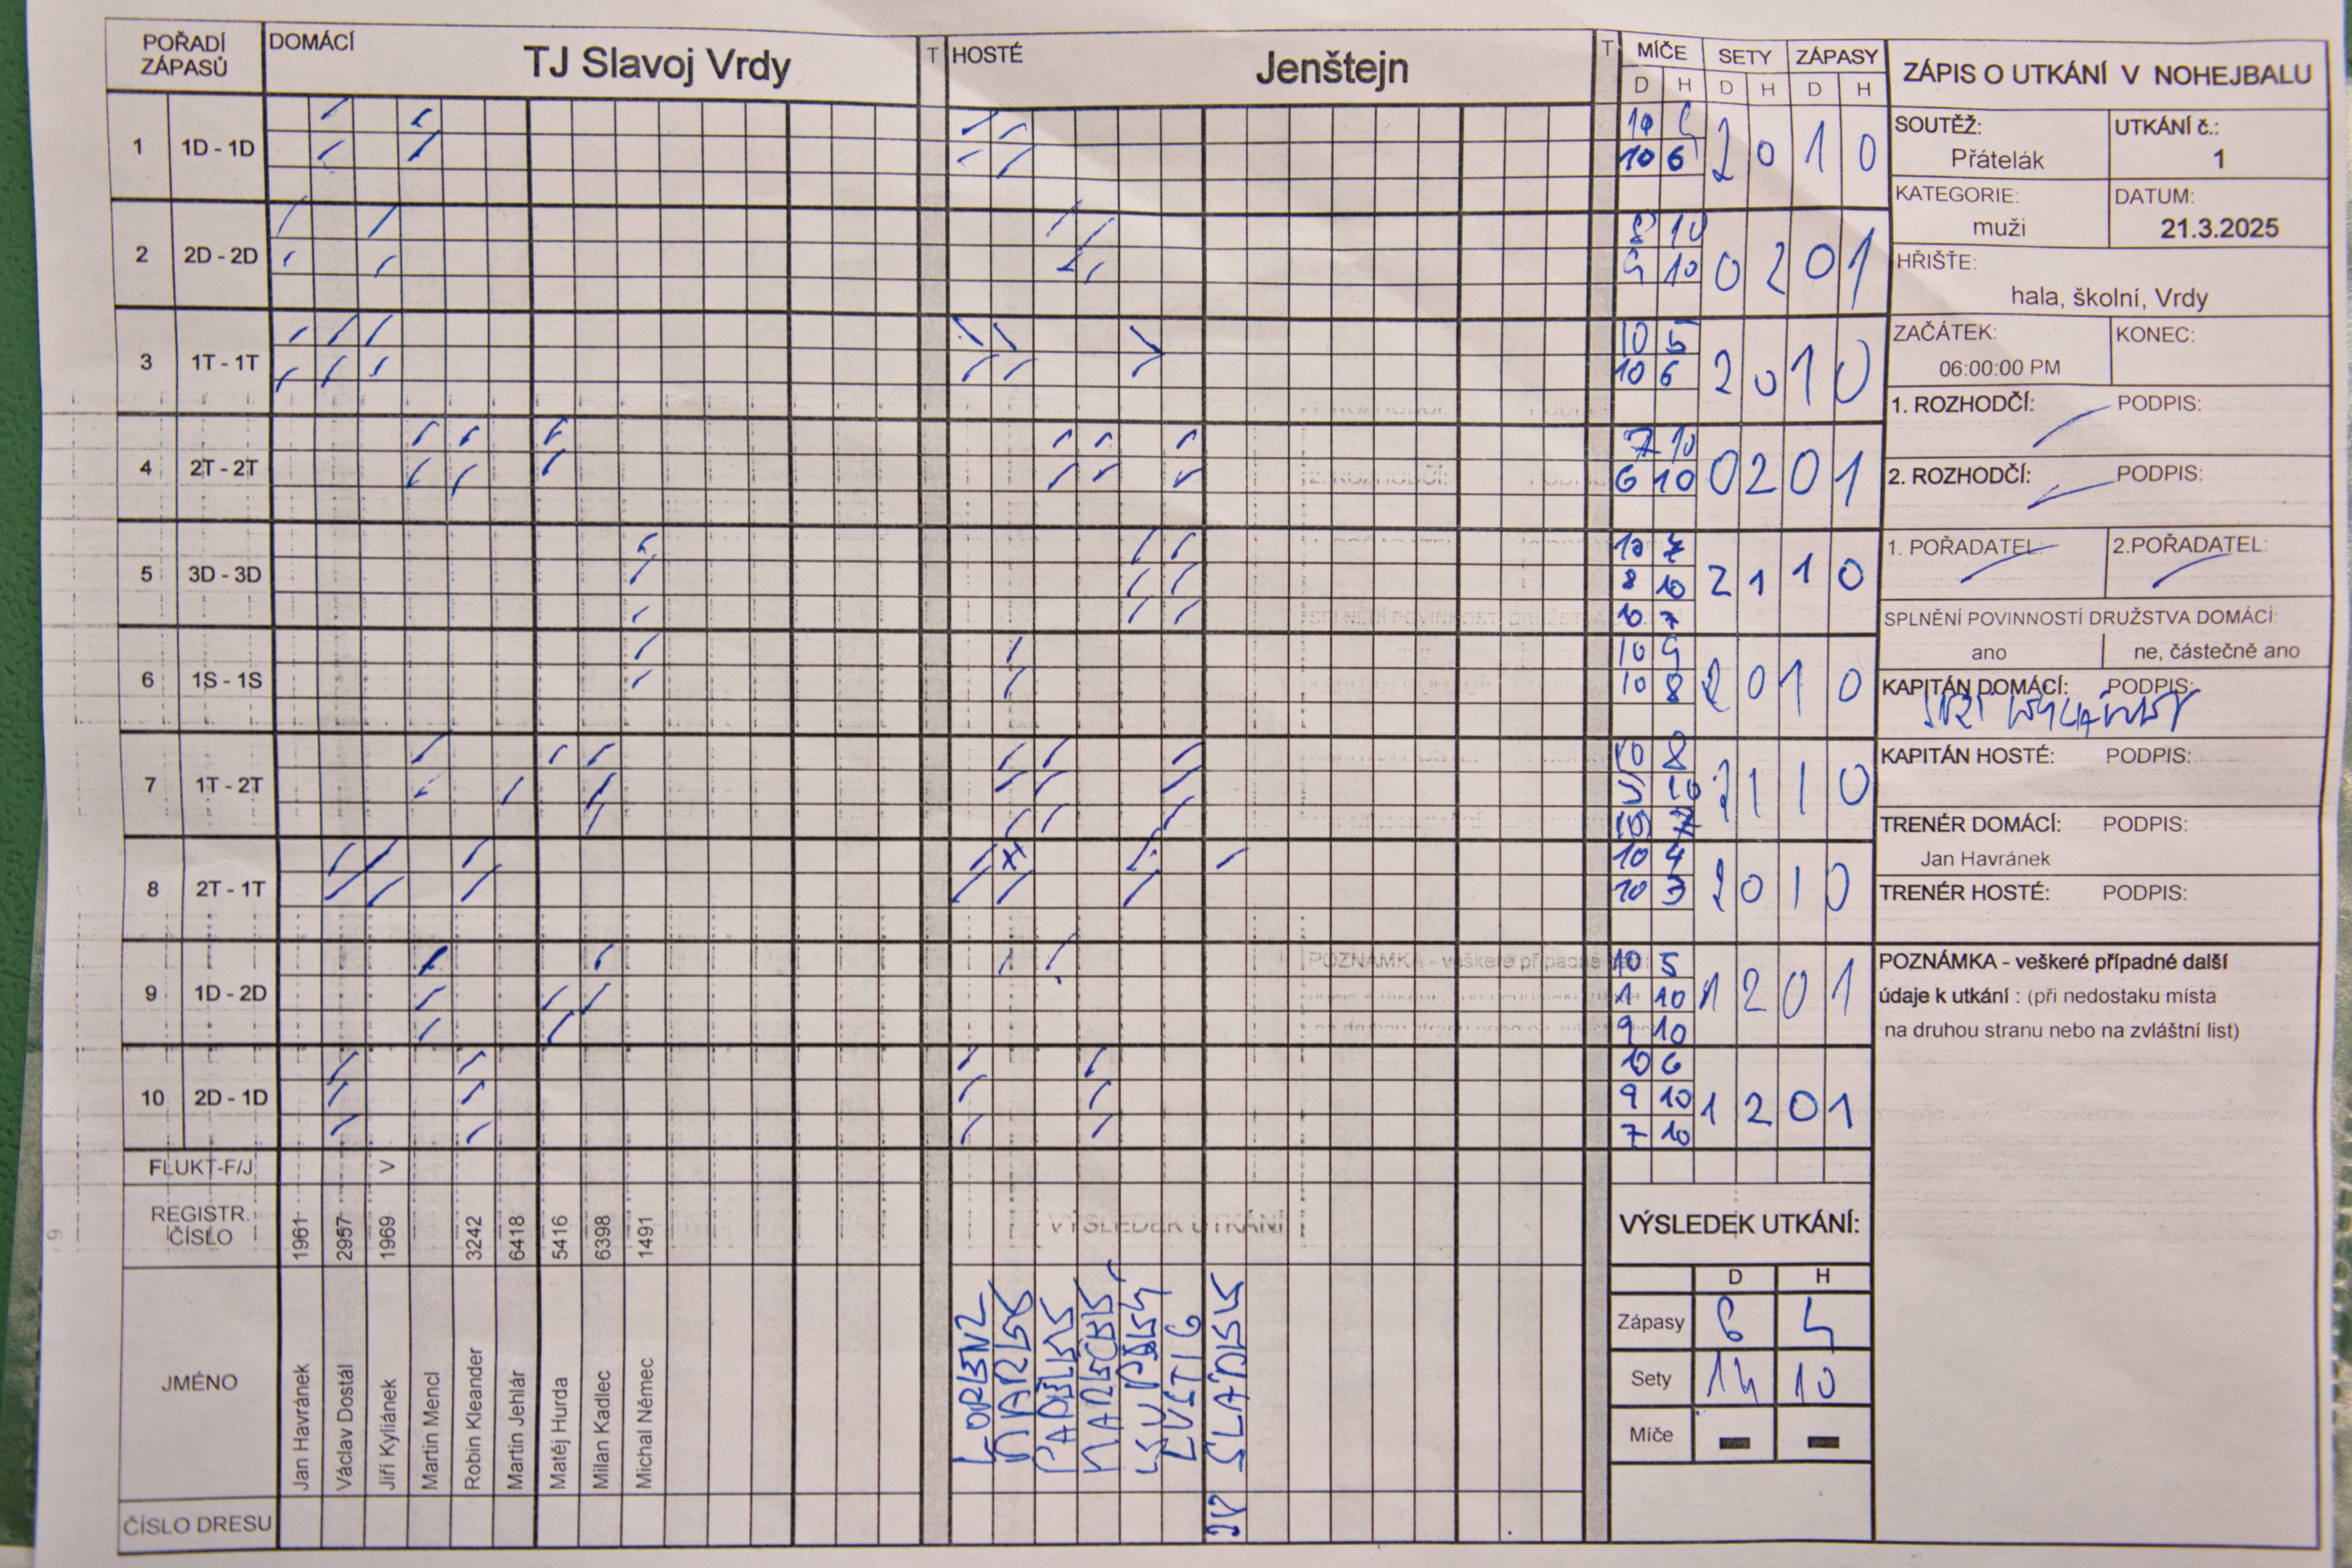 POŘADÍ ZÁPASŮ DOMÁCÍ TJ Slavoj Vrdy T HOSTÉ Jenštejn T MÍČE SETY ZÁPASY
D H D H D H
1 1D - 1D 2 0 1 0
10
10 6
2 2D - 2D 0 2 0 1
8 10
9 10
3 1T - 1T 2 0 1 0
10 5
10 6
4 2T - 2T 0 2 0 1
7 10
6 10
5 3D - 3D 2 1 1 0
10 7
8 10
10 7
6 1S - 1S 2 0 1 0
10 9
10 8
7 1T - 2T 2 1 1 0
10 8
5 10
10 7
8 2T - 1T 2 0 1 0
10 4
10 3
9 1D - 2D 1 2 0 1
10 5
1 10
9 10
10 2D - 1D 1 2 0 1
10 6
9 10
7 10
FLUKT-F/J V
REGISTR. ČÍSLO 1961 2957 1969 3242 6418 5416 6398 1491
JMÉNO
Jan Havránek
Václav Dostál
Jiří Kyliánek
Martin Mencl
Robin Kleander
Martin Jehlár
Matěj Hurda
Milan Kadlec
Michal Němec
LORENZ
ČÍSLO DRESU
VÝSLEDEK UTKÁNÍ:
D H
Zápasy 6 4
Sety 14 10
Míče - -
ZÁPIS O UTKÁNÍ V NOHEJBALU
SOUTĚŽ: UTKÁNÍ č.:
Přátelák 1
KATEGORIE: DATUM:
muži 21.3.2025
HŘIŠTE:
hala, školní, Vrdy
ZAČÁTEK: KONEC:
06:00:00 PM
1. ROZHODČÍ: PODPIS:
2. ROZHODČÍ: PODPIS:
1. POŘADATEL: 2.POŘADATEL:
SPLNĚNÍ POVINNOSTÍ DRUŽSTVA DOMÁCÍ:
ano ne, částečně ano
KAPITÁN DOMÁCÍ: PODPIS:
KAPITÁN HOSTÉ: PODPIS:
TRENÉR DOMÁCÍ: PODPIS:
Jan Havránek
TRENÉR HOSTÉ: PODPIS:
POZNÁMKA - veškeré případné další
údaje k utkání : (při nedostaku místa
na druhou stranu nebo na zvláštní list)